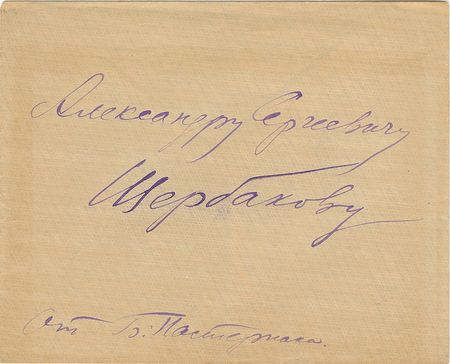 Александру Сергеевичу
Щербакову
От Б. Пастернака.